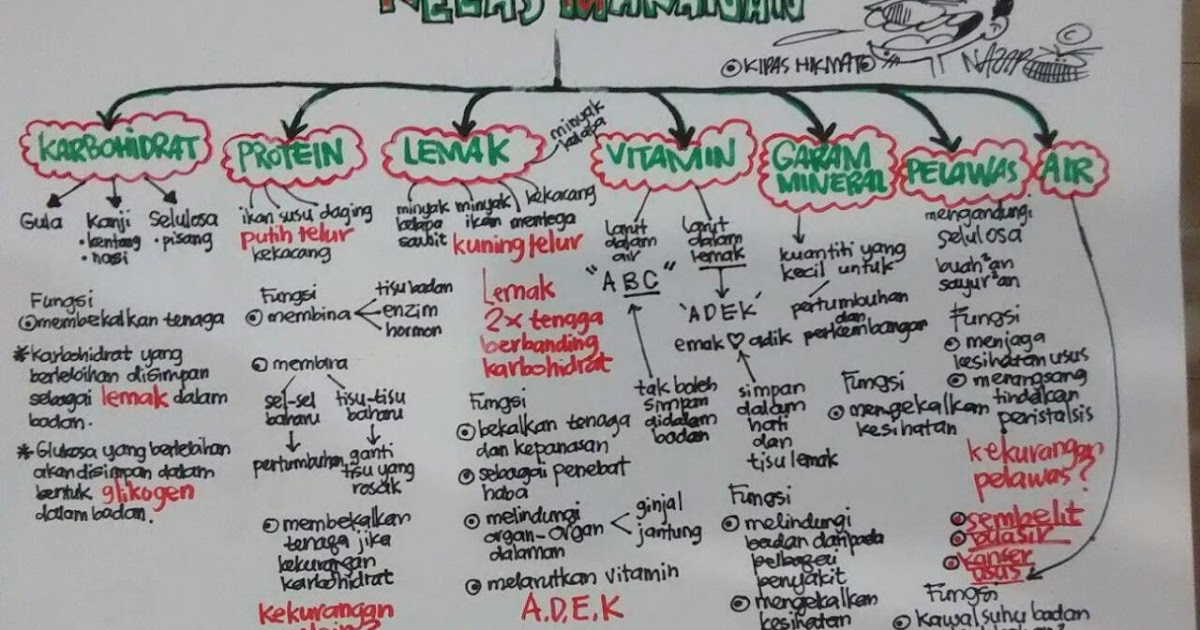 KELAS MAKANAN
KIPAS HIKMAT
KARBOHIDRAT
Gula
Kanji
• kentang
• nasi
Selulosa
• pisang
Fungsi
membekalkan tenaga
* Karbohidrat yang
berlebihan disimpan
sebagai lemak dalam
badan.
* Glukosa yang berlebihan
akan disimpan dalam
bentuk glikogen
dalam badan.
PROTEIN
ikan susu daging
putih telur
kekacang
Fungsi
membina
tisu badan
enzim
hormon
membina
sel-sel
baharu
pertumbuhan
tisu-tisu
baharu
ganti
tisu yang
rosak
membekalkan
tenaga jika
kekurangan
karbohidrat
kekurangan
LEMAK
minyak
kelapa
minyak
kelapa
sawit
minyak
ikan
kekacang
mentega
kuning telur
Lemak
2x tenaga
berbanding
karbohidrat
Fungsi
bekalkan tenaga
dan kepanasan
sebagai penebat
haba
melindungi
organ-organ
dalaman
ginjal
jantung
melarutkan vitamin
A.D.E.K
VITAMIN
larut
dalam
air
"ABC"
tak boleh
simpan
didalam
badan
larut
dalam
lemak
'ADEK'
emak ♡ adik
simpan
dalam
hati
dan
tisu lemak
Fungsi
melindungi
badan daripada
pelbagai
penyakit
mengekalkan
kesihatan
GARAM
MINERAL
kuantiti yang
kecil untuk
pertumbuhan
dan
perkembangan
Fungsi
mengekalkan
kesihatan
PELAWAS
mengandungi
selulosa
buah²an
sayur²an
Fungsi
menjaga
kesihatan usus
merangsang
tindakan
peristalsis
kekurangan
pelawas?
sembelit
buasir
kanser
usus
AIR
Fungsi
kawal suhu badan